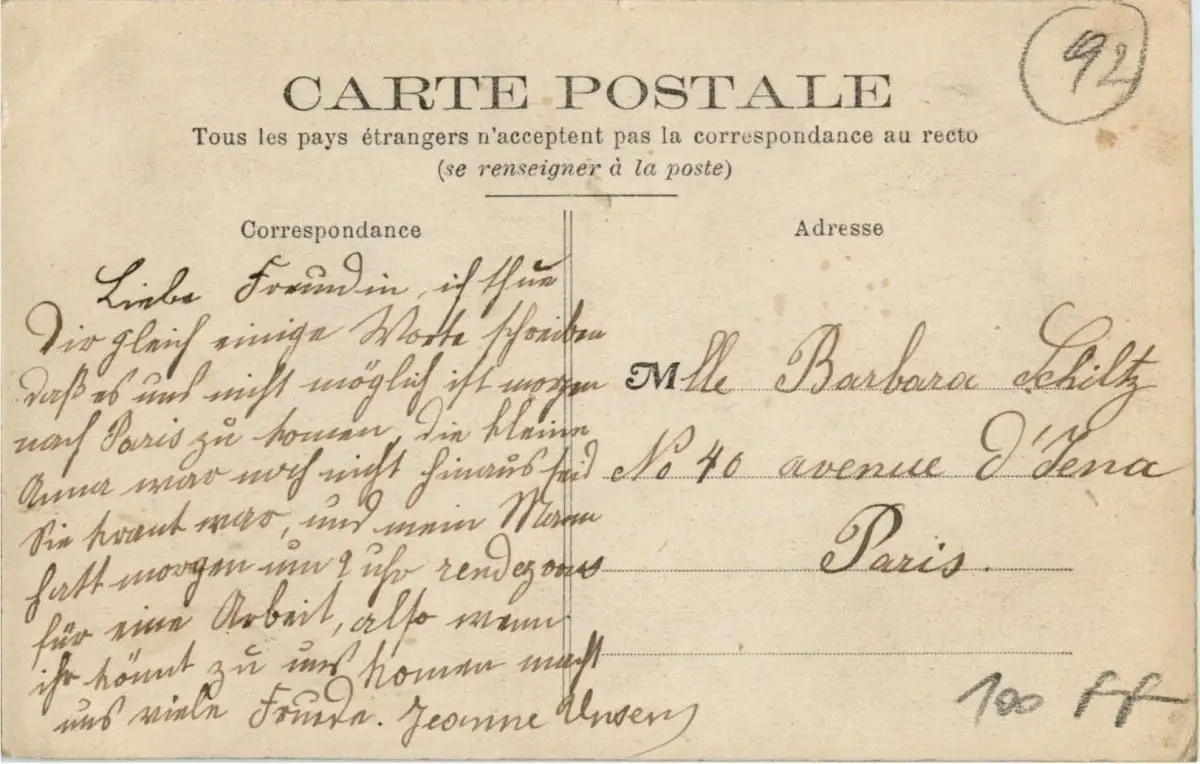 92
CARTE POSTALE
Tous les pays étrangers n'acceptent pas la correspondance au recto
(se renseigner à la poste)
Correspondance
Liebe Freundin, ich thue
Dir gleich einige Worte schreiben
daß es uns nicht möglich ist morgen
nach Paris zu komen, die kleine
Anna war noch nicht hinaus seid
Sie krant war, und mein Mann
hatt morgen um 2 uhr rendezvous
für eine Arbeit, also wenn
ihr könnt zu uns komen macht
uns viele Freude. Jeanne
Adresse
Mlle Barbara Schiltz
No 40 avenue d'Jena
Paris.
100 FF